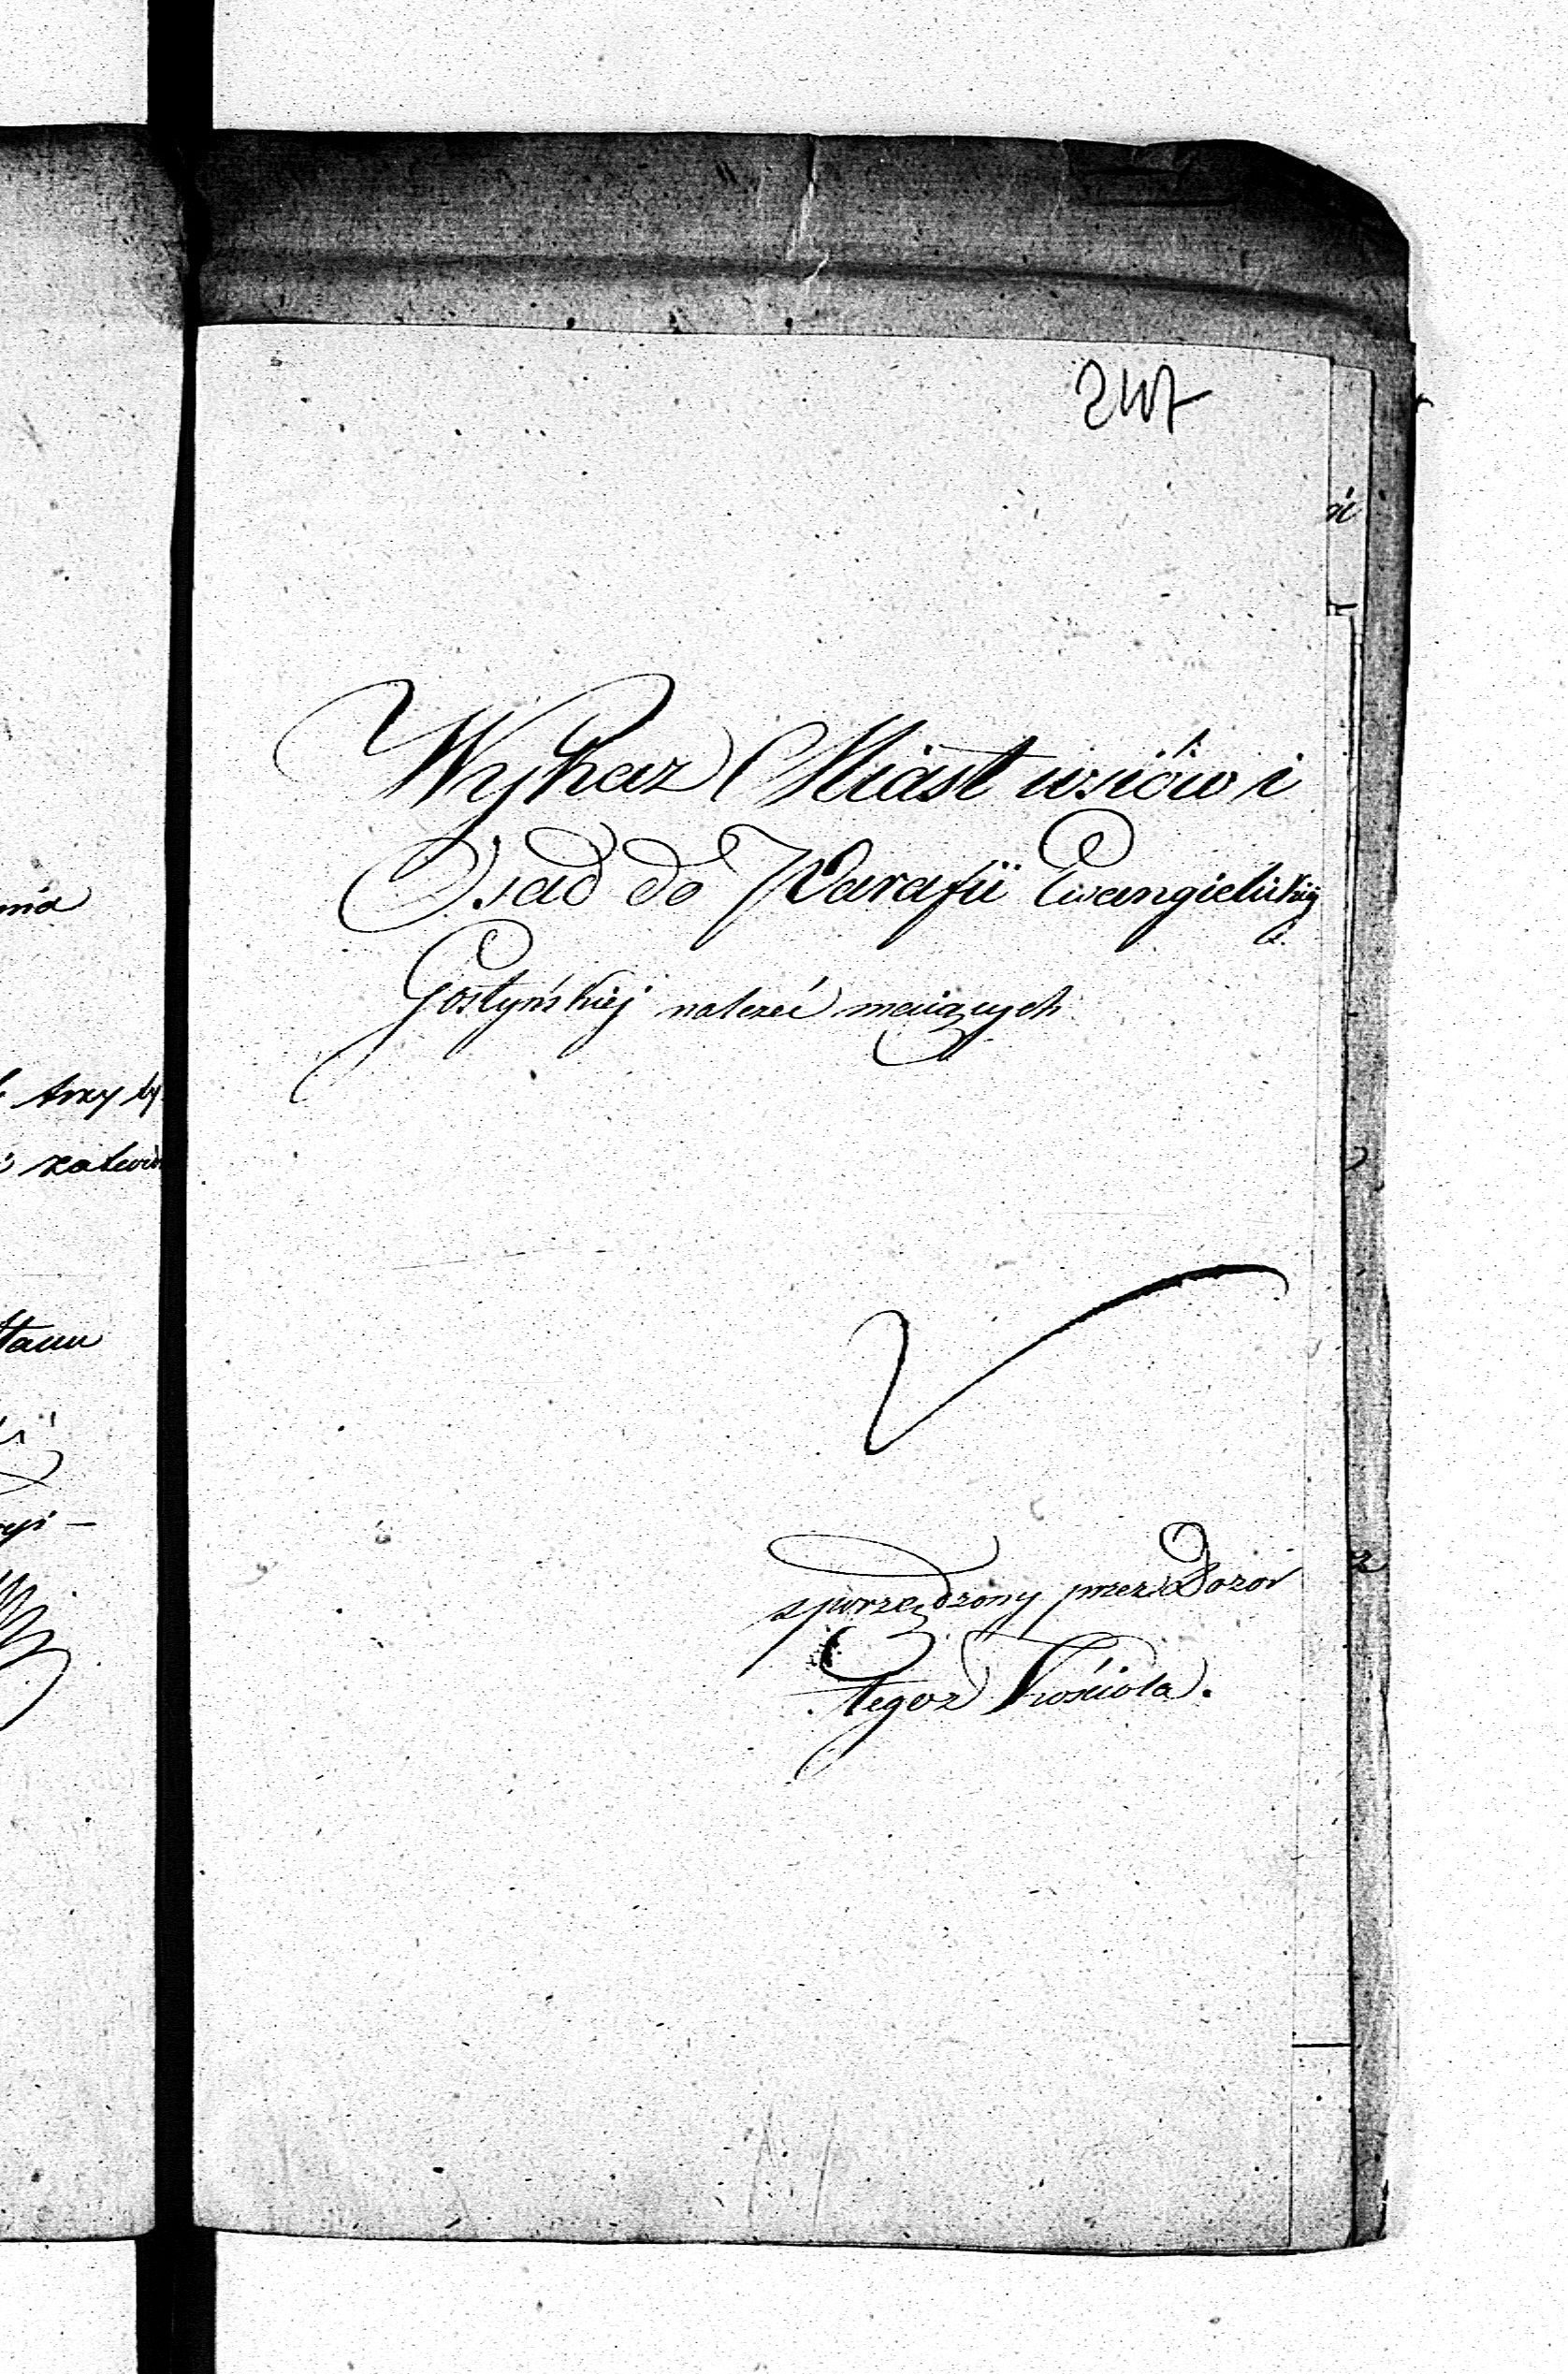 247
Wykaz Miast wsiów i
Osad do Parafii Ewangielickiéj
Gostyńskiej należeć maiących
sporządzony przez Dozor
tegoż Kościoła.